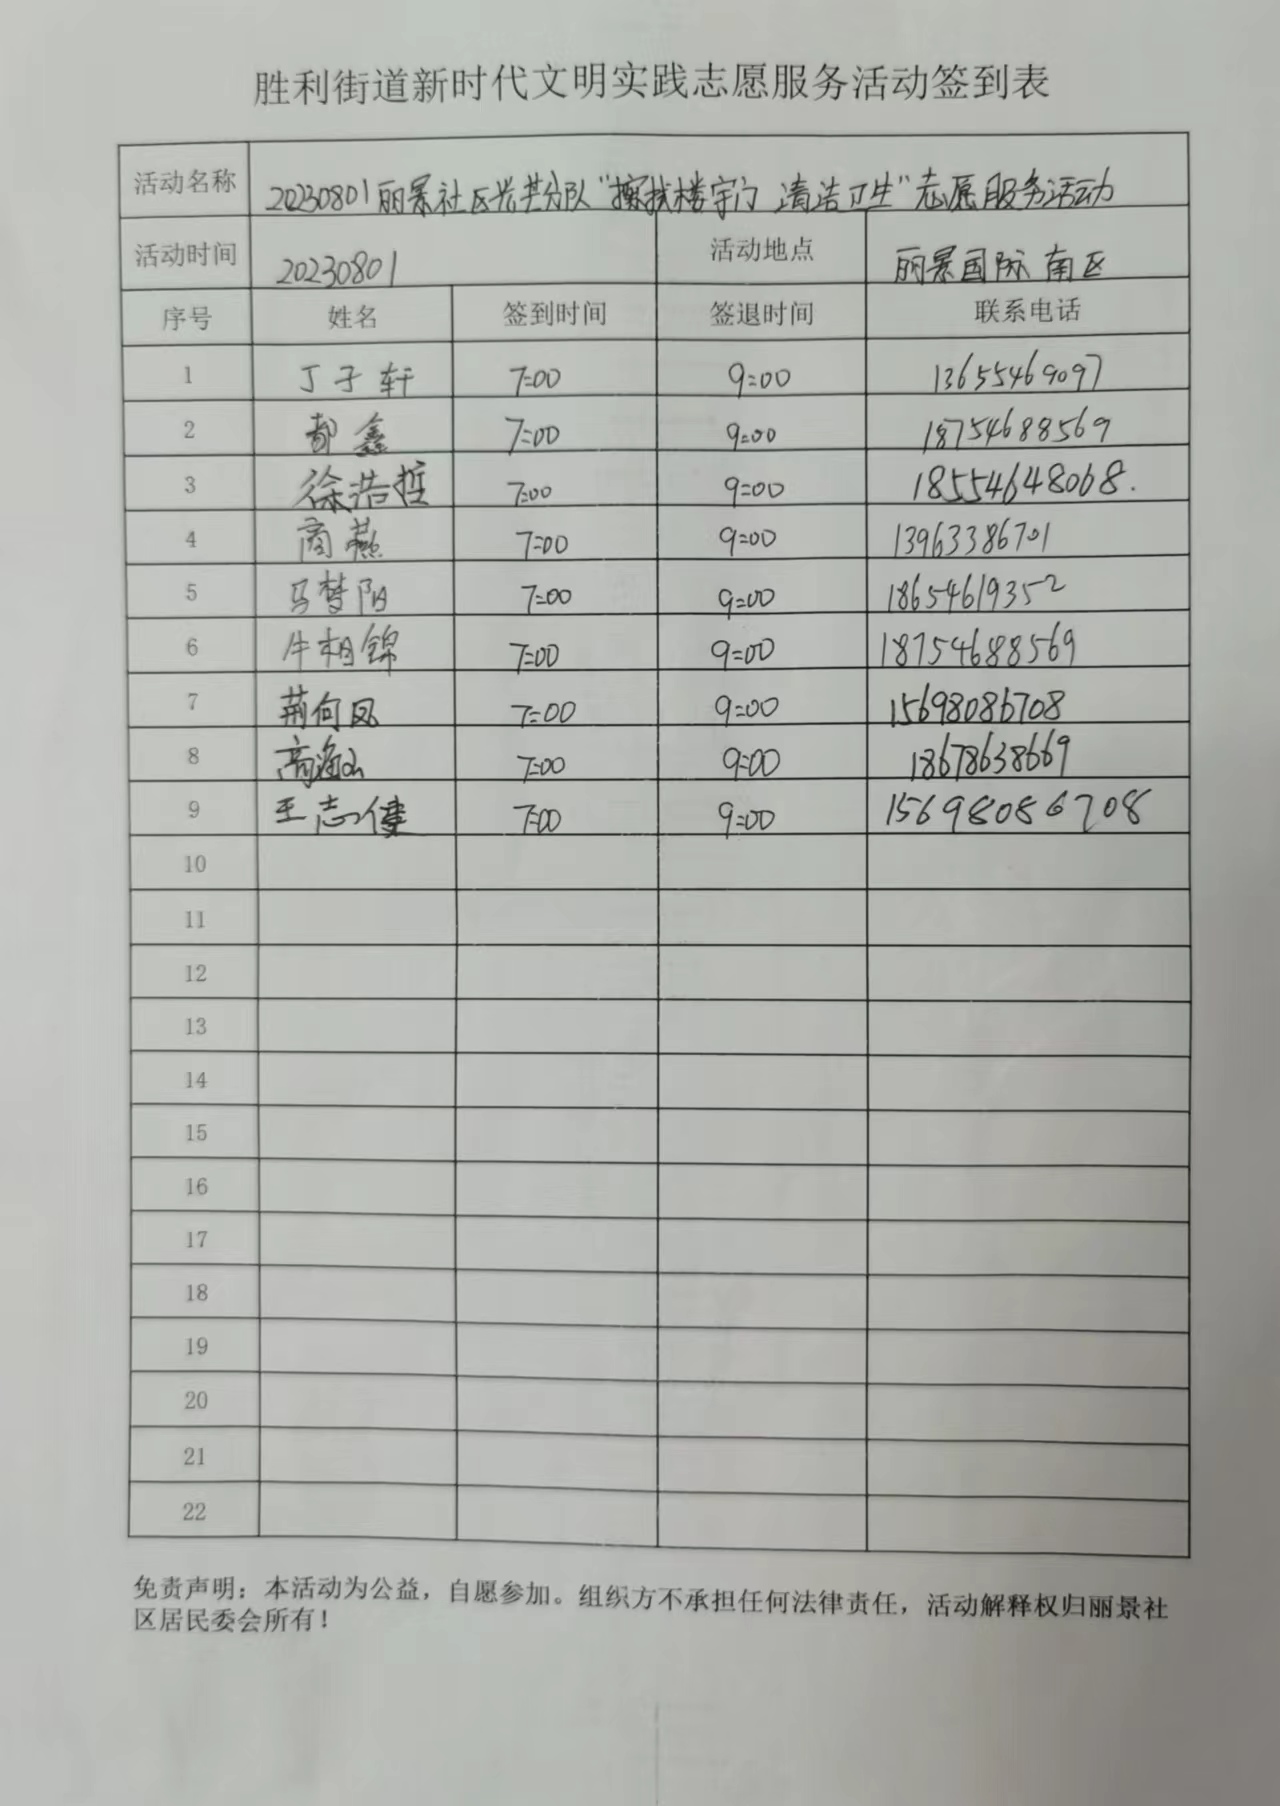 胜利街道新时代文明实践志愿服务活动签到表
活动名称 20230801丽景社区光芒分队“擦拭楼宇门 清洁卫生”志愿服务活动
活动时间 20230801 活动地点 丽景国际南区
序号 姓名 签到时间 签退时间 联系电话
1 丁子轩 7:00 9:00 13655469097
2 郝鑫 7:00 9:00 18754688569
3 徐浩哲 7:00 9:00 18554648068.
4 商燕 7:00 9:00 13963386701
5 马梦阳 7:00 9:00 18654619352
6 牛相锦 7:00 9:00 18754688569
7 荆向凤 7:00 9:00 15698086708
8 高海 7:00 9:00 18678638669
9 王志健 7:00 9:00 15698086708
10
11
12
13
14
15
16
17
18
19
20
21
22
免责声明：本活动为公益，自愿参加。组织方不承担任何法律责任，活动解释权归丽景社
区居民委会所有！